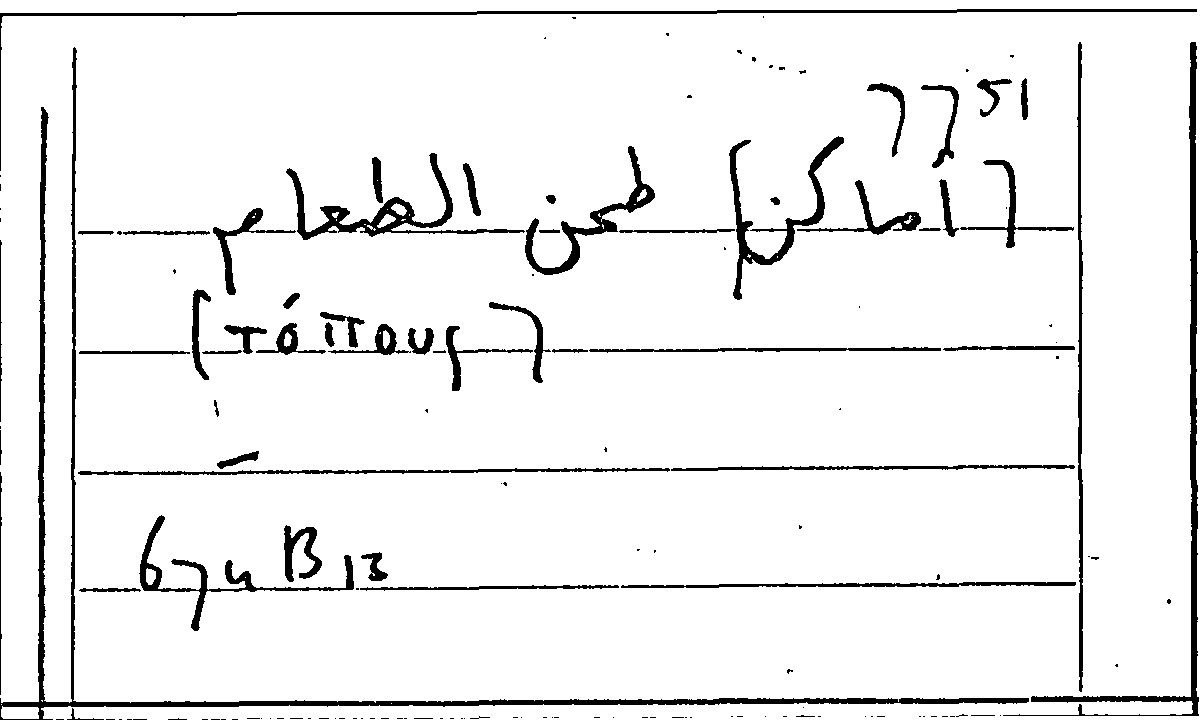 77 51
[أماكن] طحن الطعام
[τόπους]
674 B 13